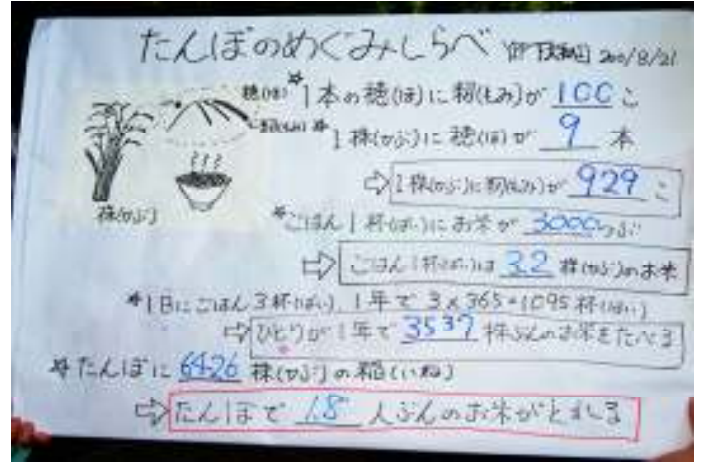 たんぼのめぐみしらべ 2001/8/21
穂(ほ) *1本の穂(ほ)に籾(もみ)が 100 こ
籾(もみ) *1株(かぶ)に穂(ほ)が 9 本
⇨1株(かぶ)に籾(もみ)が 929 こ
株(かぶ)
*ごはん1杯(ぱい)にお米が 3000 つぶ
⇨ごはん1杯(ぱい)は 3.2 株(かぶ)のお米
*1日にごはん3杯(ばい)、1年で3×365=1095杯(はい)
⇨ひとりが1年で 3537 株ぶんのお米をたべる
*たんぼに 6426 株(かぶ)の稲(いね)
⇨たんぼで 1.8 人ぶんのお米がとれる